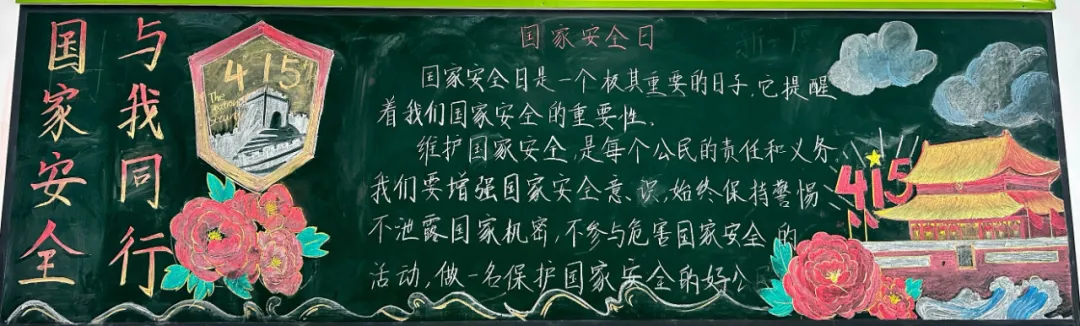 国家安全
与我同行
415
The
国家安全日
国家安全日是一个极其重要的日子,它提醒
着我们国家安全的重要性、
维护国家安全,是每个公民的责任和义务,
我们要增强国家安全意、识,始终保持警惕
不泄露国家机密,不参与危害国家安全的
活动,做一名保护国家安全的好公
415